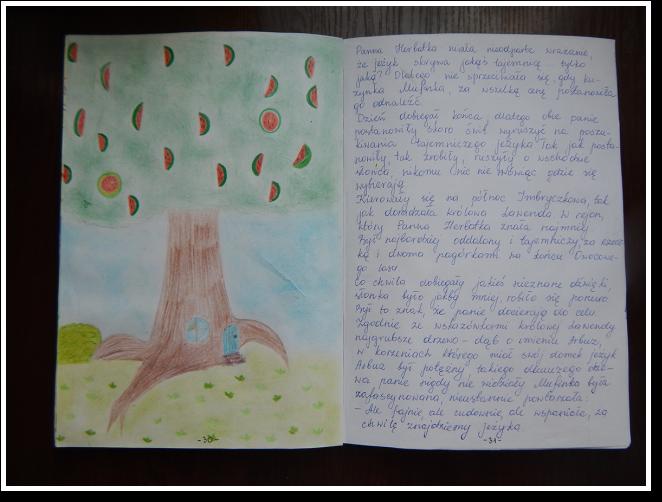 Panna Herbatka miała nieodparte wrażenie,
że jeżyk skrywa jakąś tajemnicę... tylko
jaką? Dlatego nie sprzeciwiała się, gdy ku-
zynka Mufinka, za wszelką cenę postanowiła
go odnaleźć.
Dzień dobiegał końca, dlatego obie panie
postanowiły skoro świt wyruszyć na poszu-
kiwania tajemniczego jeżyka. Tak jak posta-
nowiły, tak zrobiły, ruszyły o wschodzie
słońca, nikomu nic nie mówiąc gdzie się
wybierają.
Kierowały się na północ Imbryczkowa, tak
jak doradzała królowa Lawenda. W rejon,
który Panna Herbatka znała najmniej.
Był najbardziej oddalony i tajemniczy, za rzecz-
ką i dwoma pagórkami na końcu Owocowe-
go lasu.
Co chwila dobiegały jakieś nieznane dźwięki,
słonka było jakby mniej, robiło się ponuro.
Był to znak, że panie docierają do celu.
Zgodnie ze wskazówkami królowej Lawendy
najgrubsze drzewo - dąb o imieniu Arbuz,
w korzeniach którego miał swój domek jeżyk.
Arbuz był potężny, takiego drze-
wa panie nigdy nie widziały. Mufinka była
zafascynowana, nieustannie powtarzała:
- Ale fajnie, ale cudownie, ale wspaniale, za
chwilę znajdziemy jeżyka.
-30-
-31-